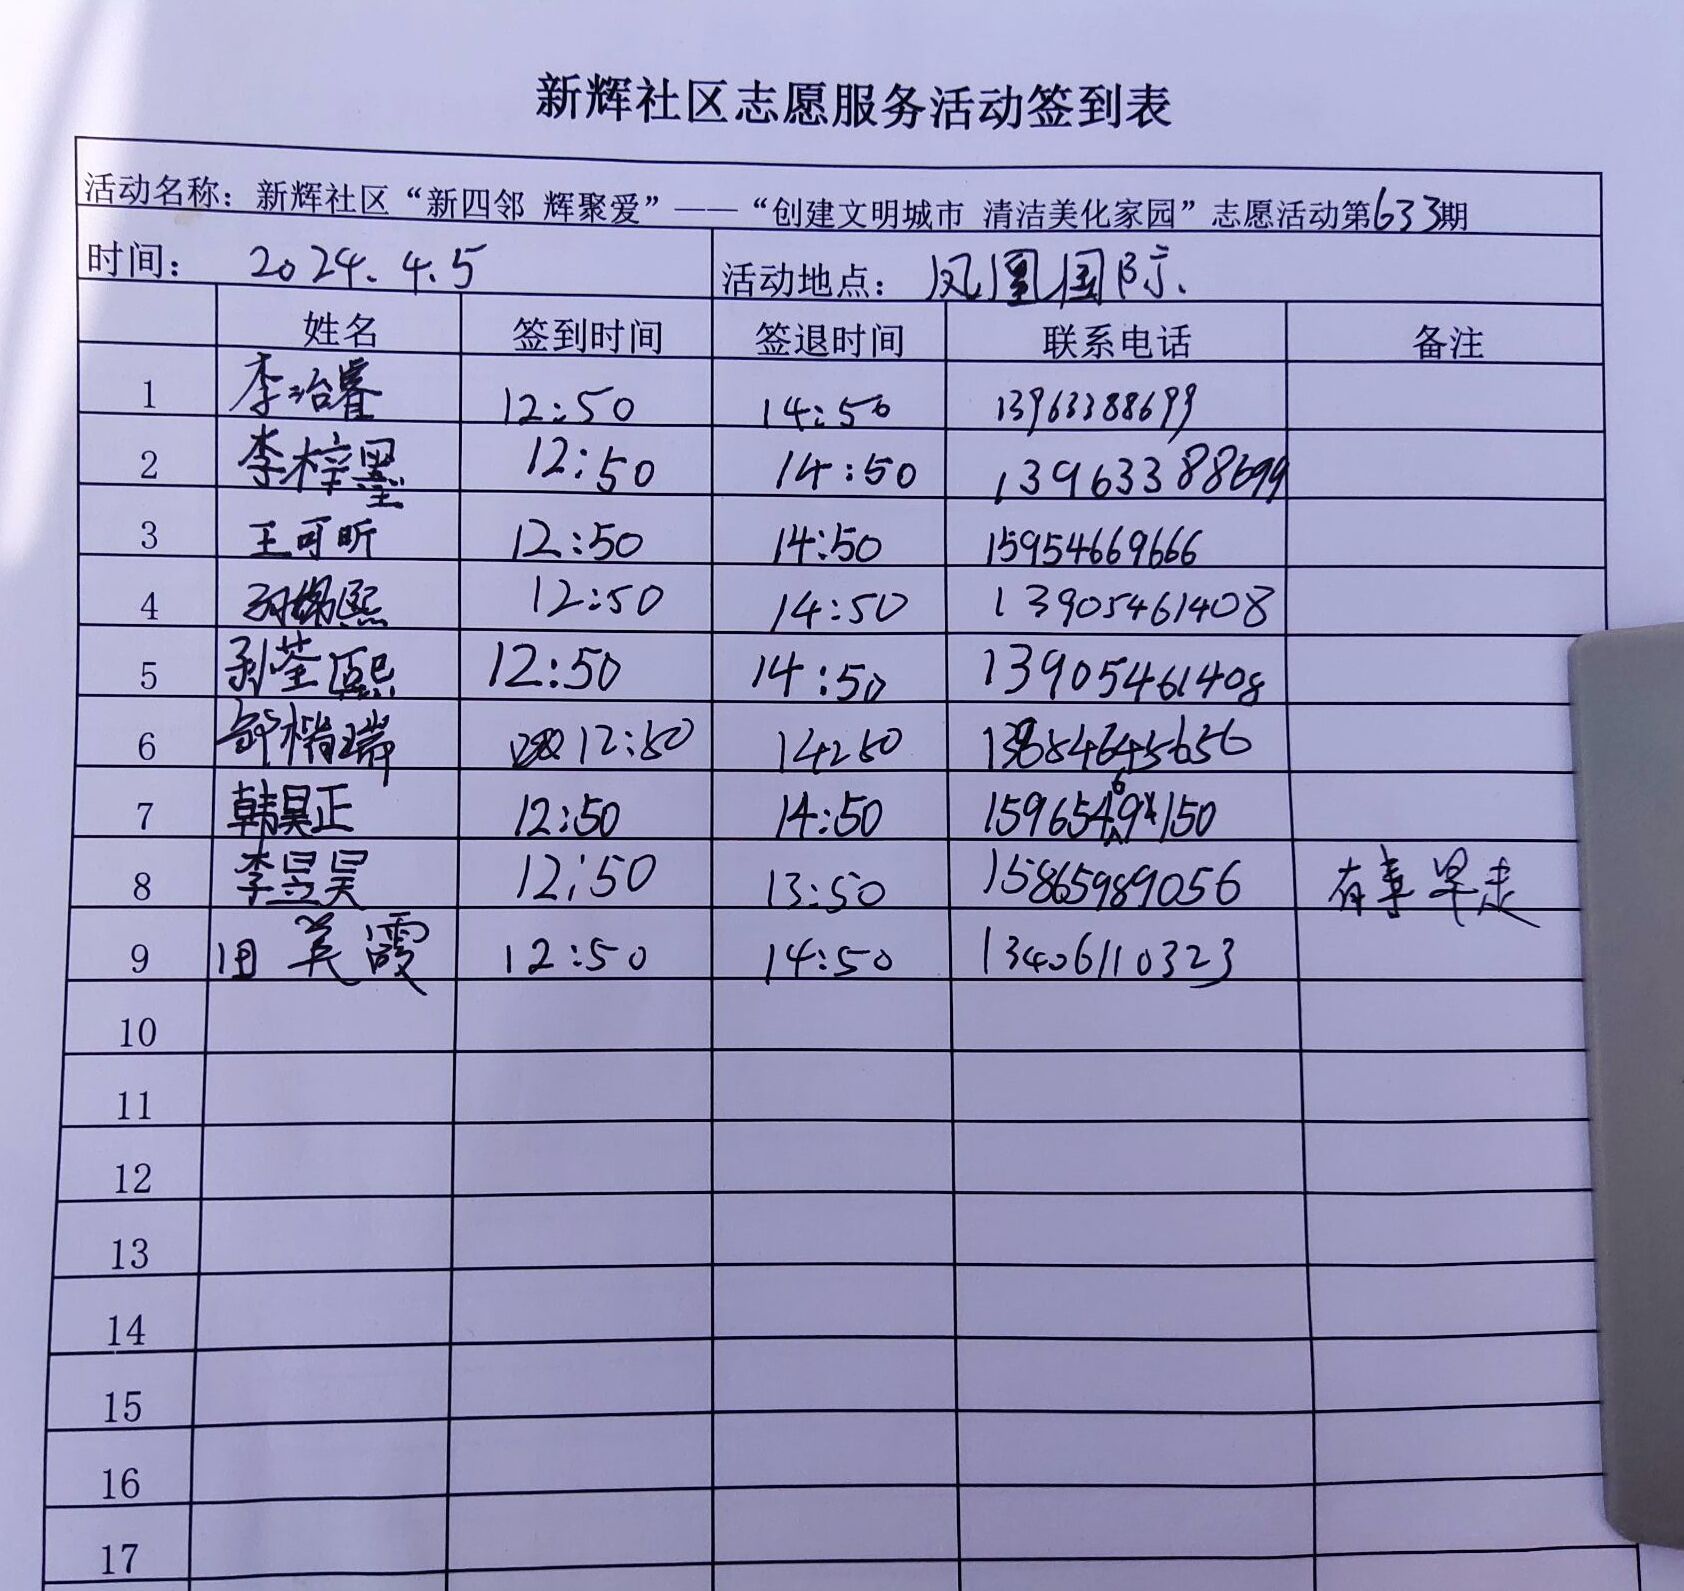 新辉社区志愿服务活动签到表
活动名称：新辉社区“新四邻 辉聚爱”——“创建文明城市 清洁美化家园”志愿活动第633期
时间： 2024.4.5 活动地点：凤凰国际.
姓名 签到时间 签退时间 联系电话 备注
1 李治睿 12:50 14:50 13963388699
2 李梓墨 12:50 14:50 13963388699
3 王可昕 12:50 14:50 15954669666
4 熙 12:50 14:50 13905461408
5 荃熙 12:50 14:50 13905461408
6 瑞 12:50 14:50
7 韩昊正 12:50 14:50
8 李昱昊 12:50 13:50 15865989056 有事早走
9 田美霞 12:50 14:50 13406110323
10
11
12
13
14
15
16
17